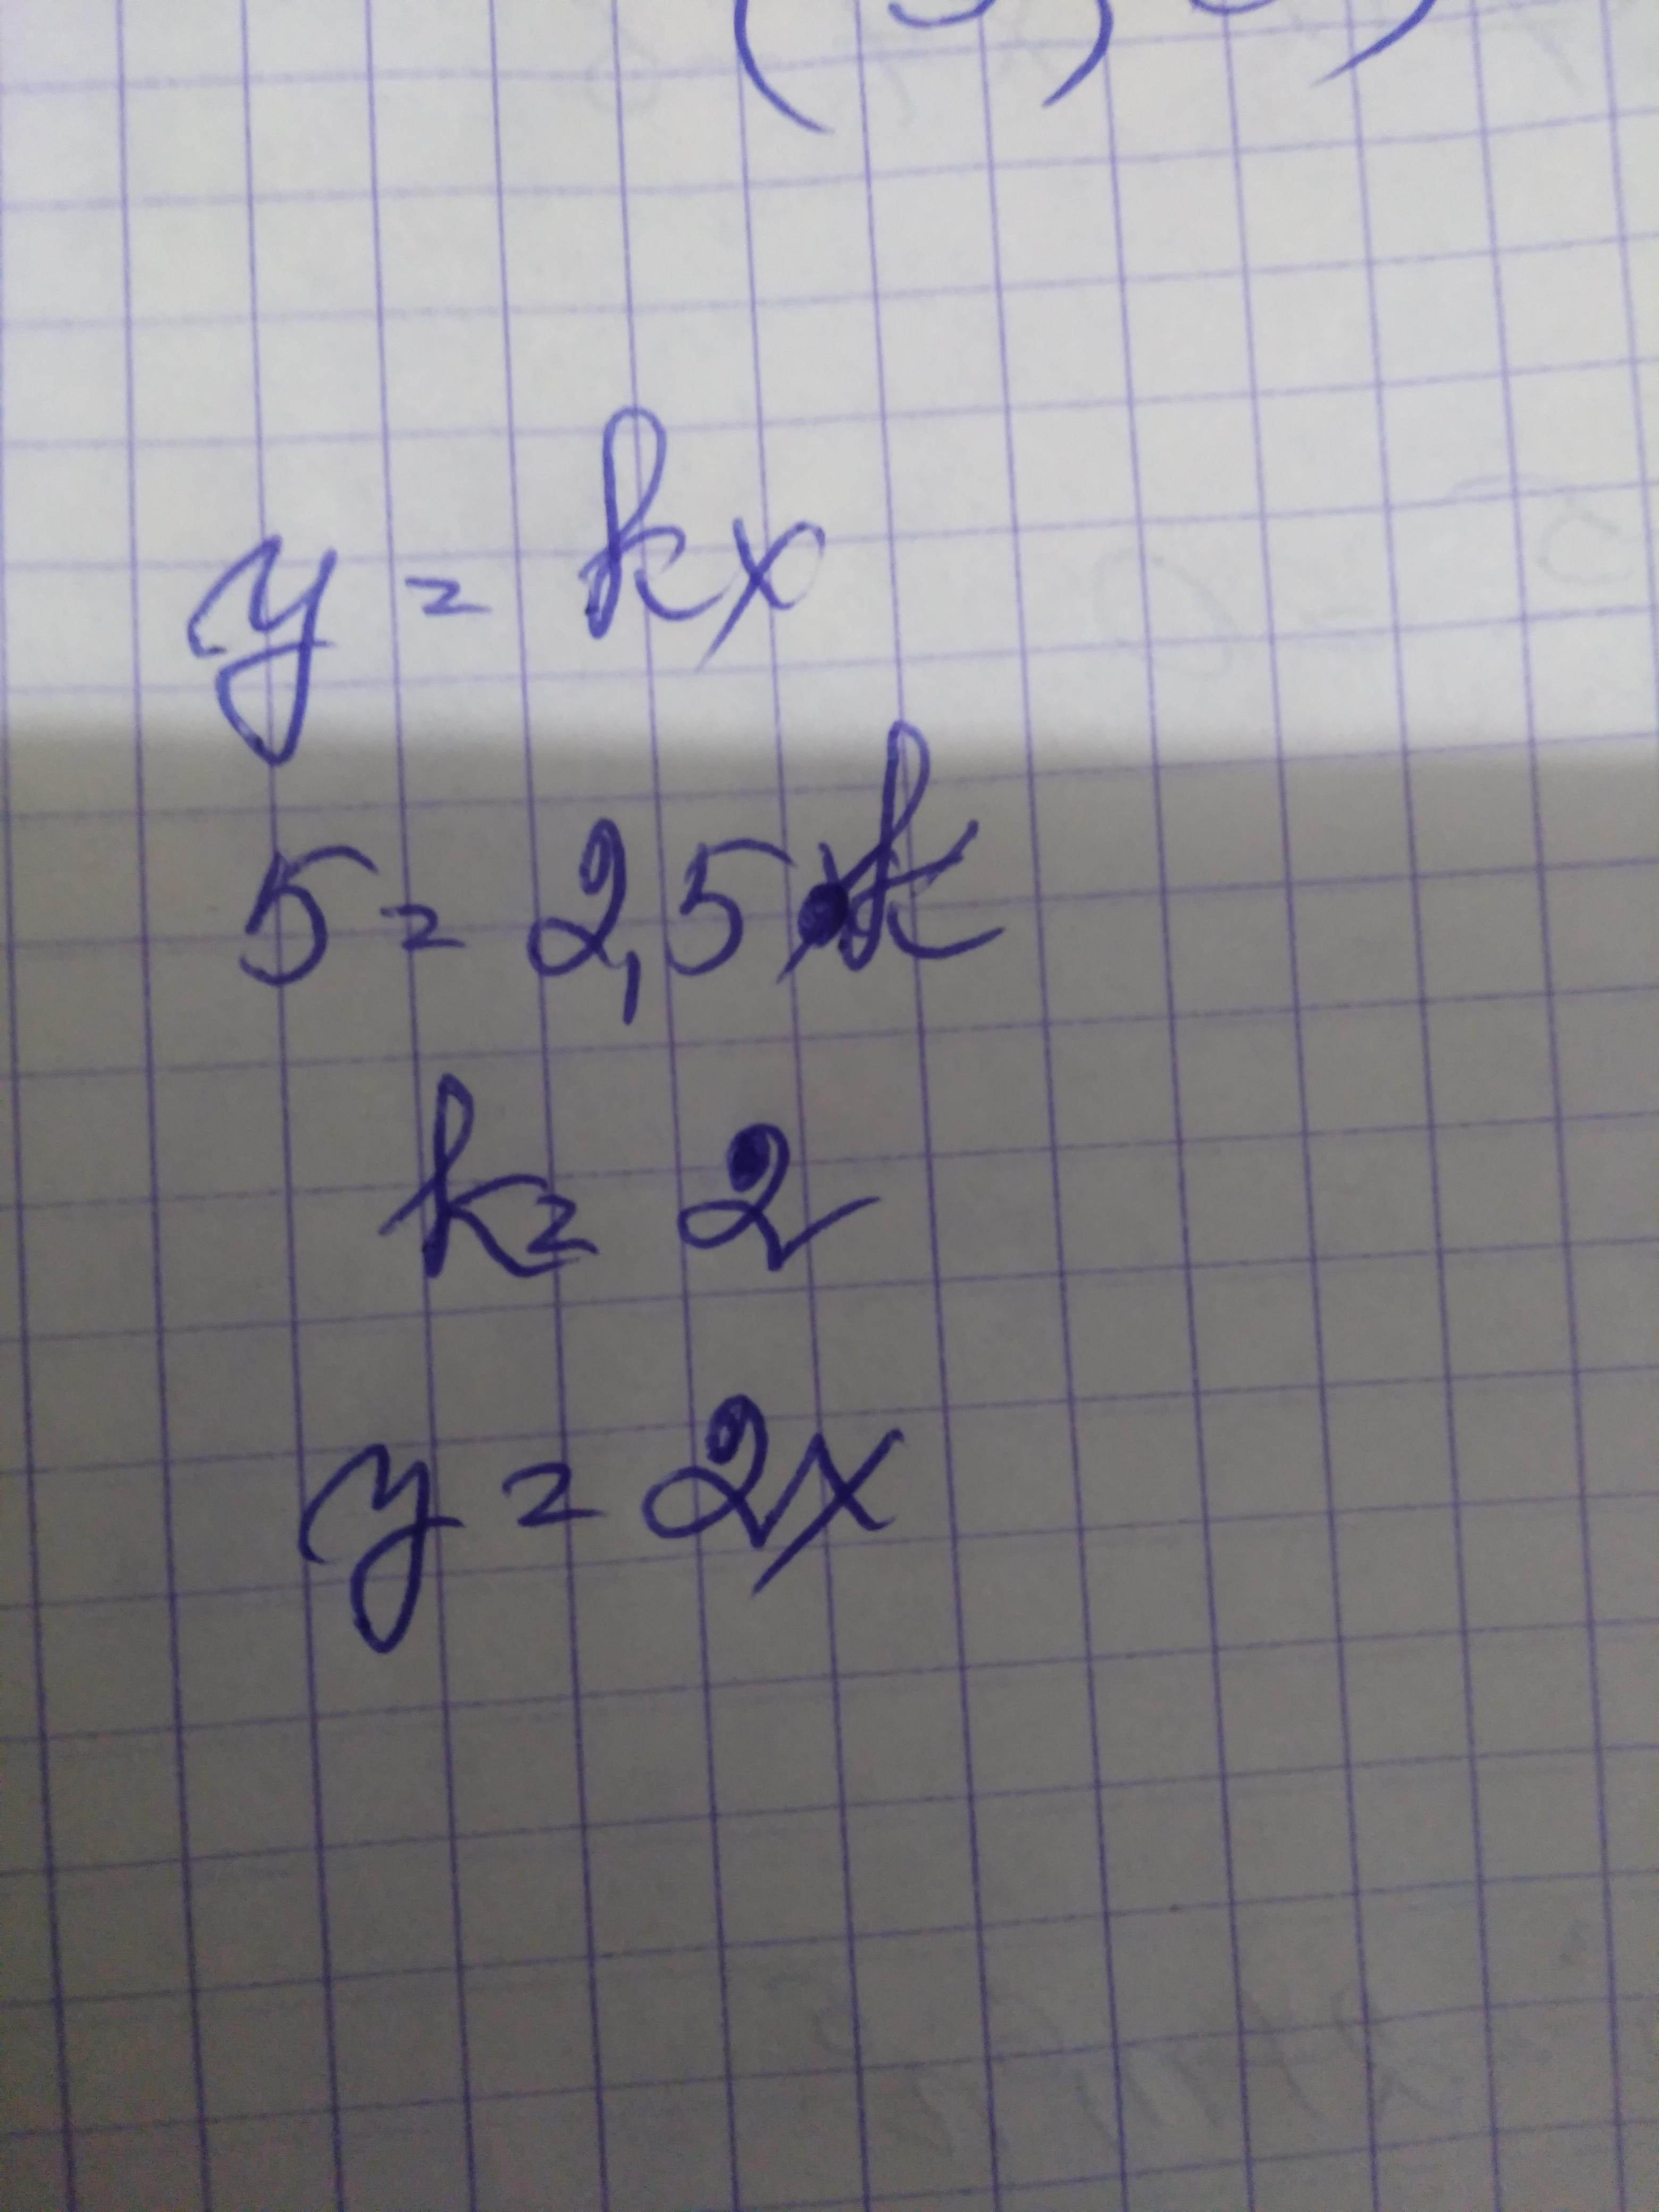 y = kx
5 = 2,5k
k = 2
y = 2x